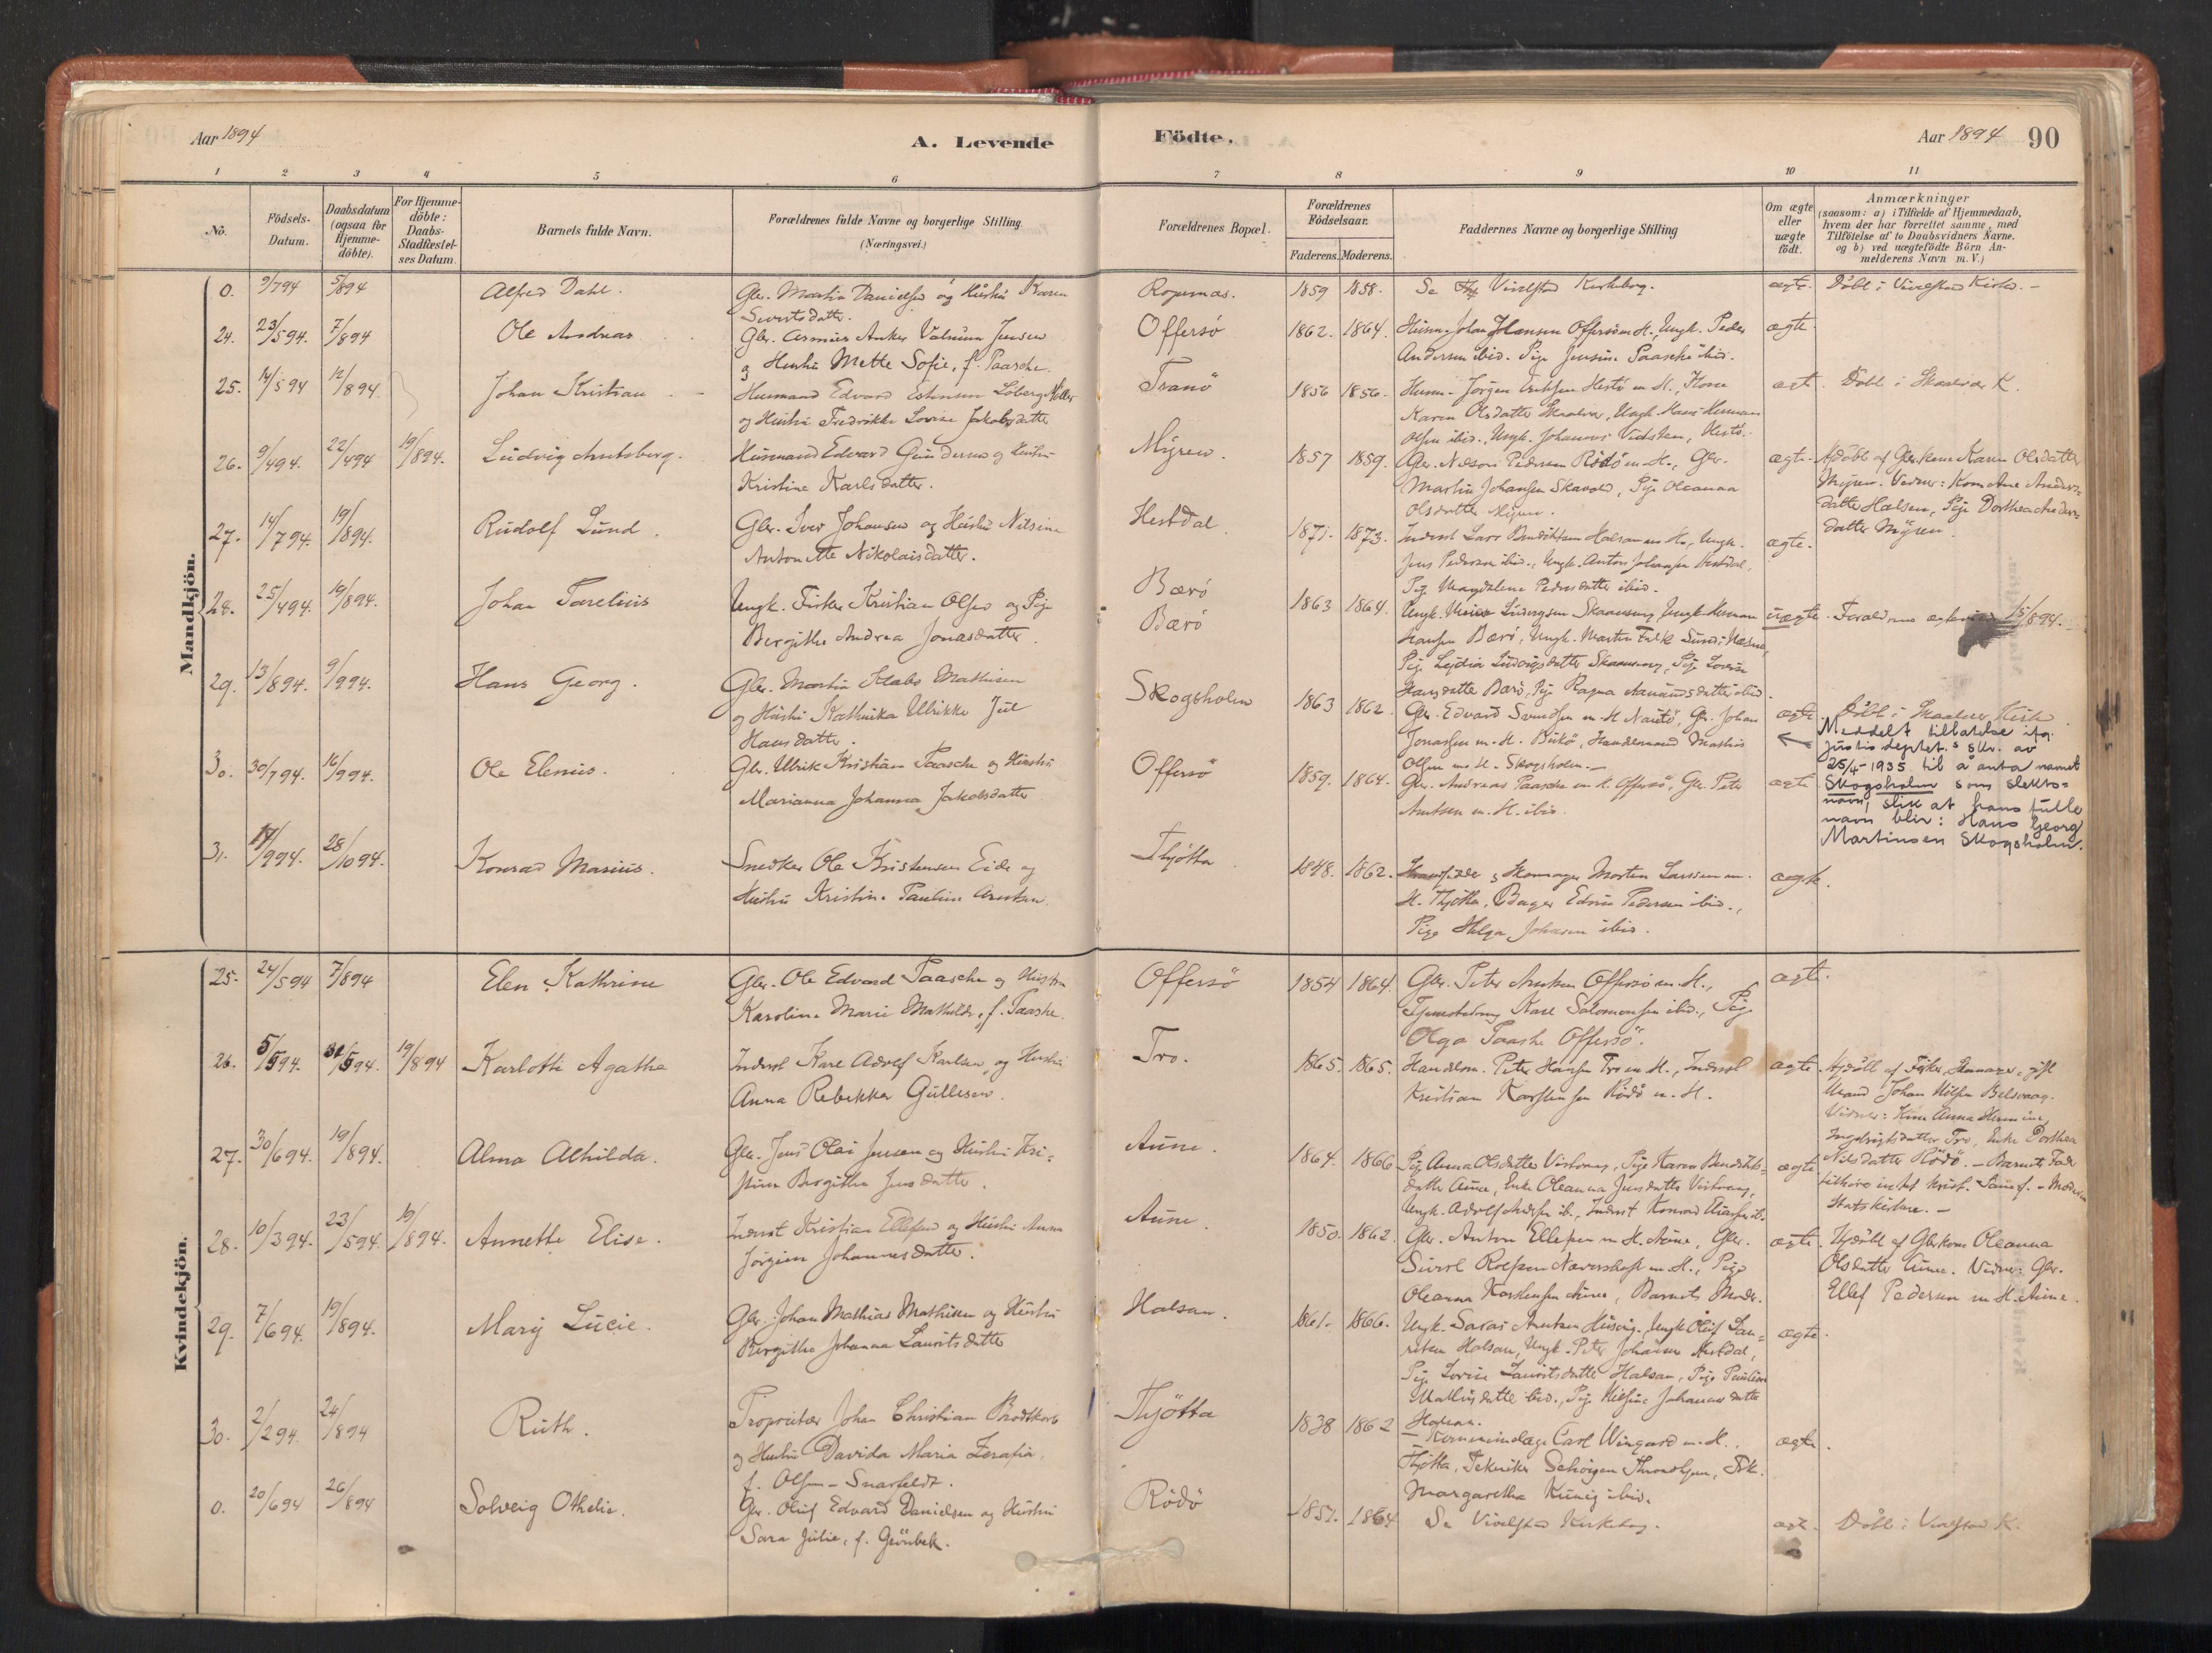 Aar 1894
A. Levende
Födte.
Aar 1894
90
1 2 3 4 5 6 7 8 9 10 11
No.
Födsels-Datum.
Daabsdatum (ogsaa for Hjemme-döbte).
For Hjemme-döbte: Daabs-Stadfæstel-ses Datum.
Barnets fulde Navn.
Forældrenes fulde Navne og borgerlige Stilling
(Næringsvei.)
Forældrenes Bopæl.
Forældrenes Födselsaar.
Faderens. Moderens.
Faddernes Navne og borgerlige Stilling
Om ægte eller uægte födt.
Anmærkninger
(saasom: a) i Tilfælde af Hjemmedaab,
hvem der har forrettet samme, med
Tilföielse af to Daabsvidners Navne.
og b) ved uægtefödte Börn An-
melderens Navn m. V.)
Mandkjön.
0. 9/7 94 5/8 94 Alfred Dahl. Gbr. Martin Danielsen og Hustru Karen
Sivertsdatter.
1859 1858. Se Vivelstad Kirkebog. ægte. Döbt i Vivelstad Kirke. -
24. 23/5 94. 7/8 94 Ole Andreas Gbr. Anker Jensen
og Hustru Mette Sofie, f. Paasche.
Offersö 1862. 1864. Johan Hansen Offersö m. H., Ungk. Peder
Andersen ibid. Pige Jensine Paasche ibid.
ægte
25. 14/5 94 12/8 94. Johan Kristian Husmand Edvard Löberg Möller
og Hustru Fredrikke Lovise Jakobsdatter
Tranö 1856 1856. Jörgen Hestö m. H., Kone
Karen Olsdatter Skaalvær, Ungk. Hans Herman
Olsen ibid. Ungk. Johannes Vidsten, Hestö.
ægt. Döbt i Skaalvær K.
26. 9/4 94. 22/4 94 19/8 94. Ludvig Arntsberg. Husmand Edvard Gundersen og Hustru
Kristine Karlsdatter.
Myren. 1857 1859. Gbr. Pedersen Rödö m. H., Gbr.
Martin Johansen Skavold, Pige Oleanna
Olsdatter Myren.
ægte. Hjdöbt af Gbrkone Karen Olsdatter
Myren. Vidner: Kone Ane Anders-
datter Halsen, Pige Dorthea
datter Myren
27. 14/7 94. 19/8 94. Rudolf Lund. Gbr. Iver Johansen og Hustru Nilsine
Antonette Nikolaisdatter.
Hestdal 1871. 1873. Inderst Lars Halsan m. H., Ungk.
Jens Pedersen ibid., Ungk. Anton Johansen Hestdal,
Pige Magdalene Pedersdatter ibid.
ægte.
28. 25/4 94. 19/8 94. Johan Torelius Ungk. Fisker Kristian Olsen og Pige
Bergithe Andrea Jonasdatter.
Bærö
Bærö
1863 1864. Ungk. Ludvigsen Ungk. Herman
Hansen Bærö, Ungk. Martin Falk
Pige Lydia Ludvigsdatter Pige Lovise
Hansdatter Bærö, Pige Ragna ibid.
uægte. 15/8 94.
29. 13/8 94. 9/9 94. Hans Georg. Gbr. Martin Klabo Mathisen
og Hustru Kathinka Ullrikke Jul
Hansdatter.
Skogsholm 1863 1862. Gbr. Edvard Svendsen m. H. Gbr. Johan
Jonassen m. H. Handelsmand Mathis
Olsen m. H. Skogsholm. -
ægte Döbt i Skaalvær Kirke
Meddelt tillatelse ifg.
justisdeptet.s skr. av
25/4-1935 til å anta navnet
Skogsholm som slekts=
navn, slik at hans fulle
navn blir: Hans Georg
Martinsen Skogsholm.
30. 30/7 94. 16/9 94. Ole Elenius. Gbr. Ulrik Kristian Paasche og Hustru
Marianna Johanna Jakobsdatter
Offersö 1859. 1864. Gbr. Andreas Paasche m. H. Offersö, Gbr. Peter
Arntsen m. H. ibid.
ægte
31. 17/9 94. 28/10 94. Konrad Marius. Snedker Ole Kristensen Eide og
Hustru Kristine Pauline Arntsen.
Thjötta 1848. 1862. Skomager Morten Larssen m.
H. Thjötta, Bager Edvin Pedersen ibid.,
Pige Helga Johansen ibid.
ægte.
Kvindekjön.
25. 24/5 94 7/8 94 Elen Kathrine Gbr. Ole Edvard Paasche og Hustru
Karoline Marie Mathilde, f. Paasche.
Offersö 1854 1864. Gbr. Peter Arntsen Offersö m. H.,
Karl Salomonsen ibid., Pige
Olga Paasche Offersö.
ægte.
26. 5/5 94. 31/5 94. 19/8 94 Karlotte Agathe Inderst Karl Adolf Karlsen og Hustru
Anna Rebekka Gullesen.
Tro. 1865. 1865. Handelsm. Peter Hansen Tro m. H., Inderst
Kristian Karstensen Rödö m. H.
ægte. Hjdöbt af Fisker, gift
Mand Johan Nilsen Belsvaag.
Vidner: Kone Anna
Tro, Enke Dorthea
Nilsdatter Rödö. - Barnets Fader
Statskirken. -
27. 30/6 94. 19/8 94. Alma Alhilda. Gbr. Jens Olai Jensen og Hustru Kri-
stine Bergithe Jensdatter.
Aune. 1864. 1866 Pige Anna Olsdatter Pige Karen
datter Aune, Enke Oleanna Jensdatter
ægte
28. 10/3 94. 23/5 94. 19/8 94. Annette Elise. Inderst Kristian Ellefsen og Hustru Anna
Jörgine Johannesdatter.
Aune. 1850. 1862. Gbr. Anton Ellefsen m. H. Aune, Gbr.
Sivert m. H., Pige
Oleanna Karstensen Aune, Barnets Moder.
ægte. Hjdöbt af Gbrkone Oleanna
Olsdatter Aune. Vidner: Gbr.
Ellef Pedersen m. H. Aune.
29. 7/6 94. 19/8 94. Mary Lucie. Gbr. Johan Mathias Mathisen og Hustru
Bergithe Johanna Lauritsdatter
Halsan. 1861. 1866. Ungk. Arntsen Husvig. Ungk. Oluf Lau-
ritsen Halsan, Ungk. Peter Johansen Hestdal,
Pige Lovise Lauritsdatter Halsan, Pige Pauline
ibid., Pige Johannesdatter
Halsan.
ægte.
30. 2/2 94. 24/8 94 Ruth. Proprietær Johan Christian Brodtkorb
og Hustru Davida Maria Serafia,
f. Olsen - Snarfeldt.
Thjötta 1838 1862 - Kommunelæge Carl Wingaard m. H.
Thjötta, Tekniker Frk.
Margaretha ibid.
ægte.
0. 20/6 94 26/8 94 Solveig Othelie. Gbr. Oluf Edvard Danielsen og Hustru
Sara Julie, f. Grönbek.
Rödö 1851. 1864 Se Vivelstad Kirkebog. ægt. Döbt i Vivelstad K.